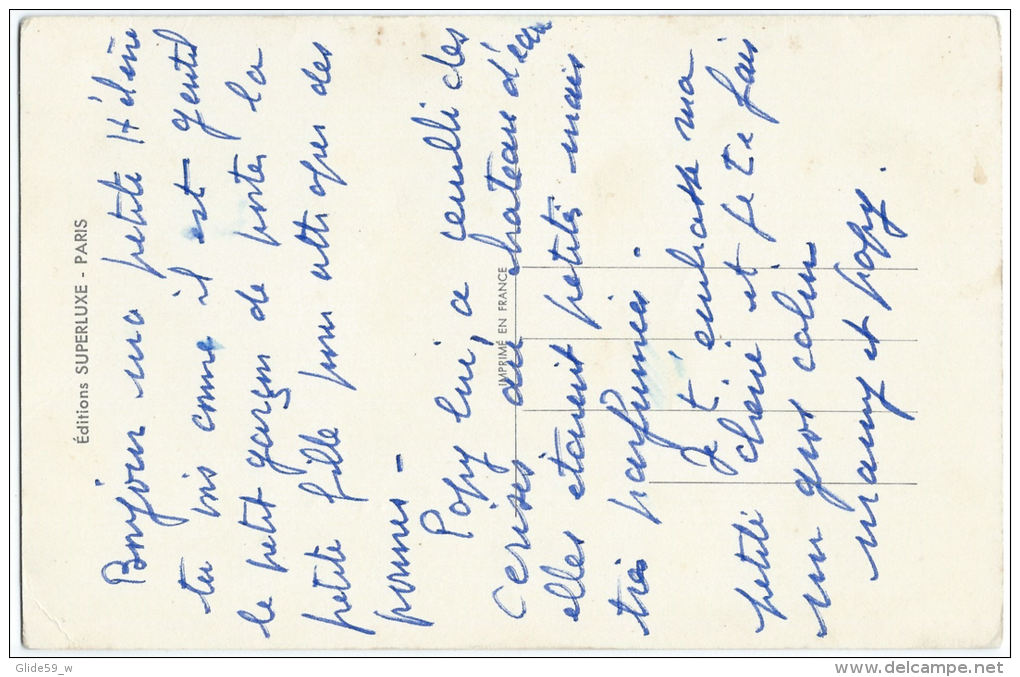 Éditions SUPERLUXE - PARIS
IMPRIMÉ EN FRANCE
Bonjour ma petite Hélène
tu vois comme il est gentil
le petit garçon de porter la
petite fille pour attraper des
pommes -
Papy lui, a cueilli des
cerises au chateau d'eau
elles étaient petites mais
très parfumées -
Je t'embrasse ma
petite chérie et je te fais
un gros calin
mamy et papy.
Glide59_w
www.delcampe.net